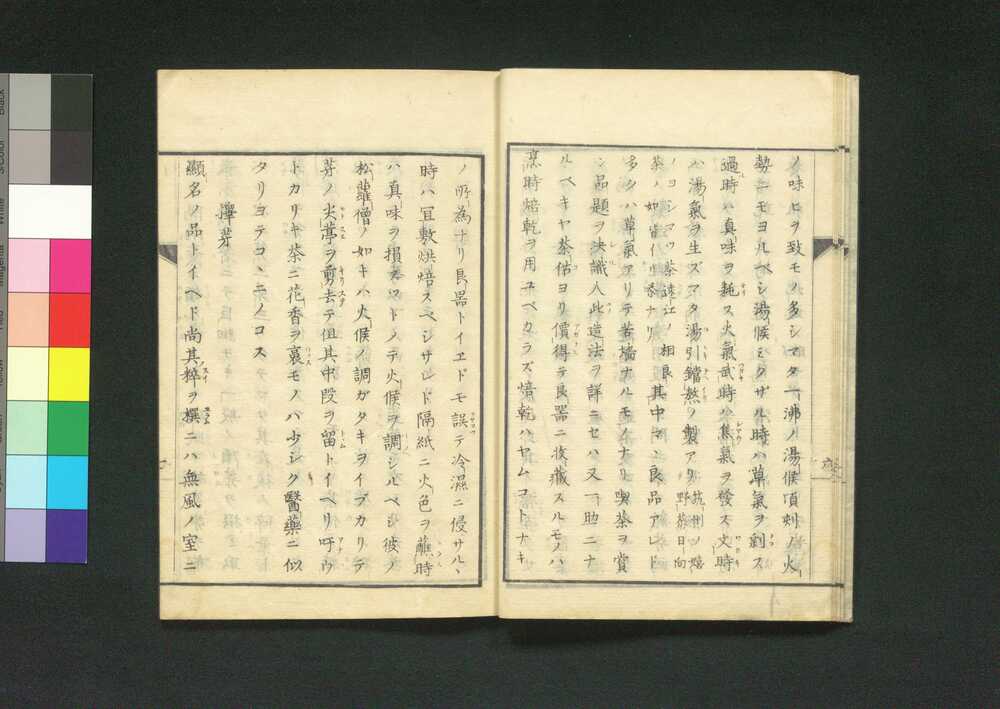 ノ味ヒヲ致モノ多シマタ一沸ノ湯候頃刻ノ火
勢ニモヨルベシ湯候ミタザル時ハ草氣ヲ剏ス
過時ハ真味ヲ耗ス火氣武時ハ焦氣ヲ發ス文時
ハ湯氣ヲ生ズマタ湯引鐺熬ノ製アリ筑州ノ嬉野茶日向
ノヨシマツ茶遠江ノ相良茶ノ如皆其中マヽ良品アレド
多クハ草氣アリテ苦墻ナルモノナリ喫茶ヲ賞
シ品題ヲ決識人此造法ヲ詳ニセハ又一助ニナ
ルベキヤ茶估ヨリ價得テ良器ニ收藏スルモノハ
烹時焙乾ヲ用ユベカラズ焙乾ハヤムコトナキ
ノ所為ナリ良器トイヱドモ誤テ冷濕ニ侵サルヽ
時ハ冝敷烘焙スベシサレド隔紙ニ火色ヲ蘸時
ハ真味ヲ損スコトノテ火候ヲ調シルベシ彼ノ
松蘿僧ノ如キハ火候ノ調ガタキヲイブカリテ
芽ノ尖蔕ヲ剪去テ但其中段ヲ留トイベリ吁ウ
トカリキ茶ニ花香ヲ裛モノハ少シク醫藥ニ似
タリヨテコヽニノコス
擇芽
顯名ノ品トイヘド尚其粹ヲ撰ニハ無風ノ室ニ